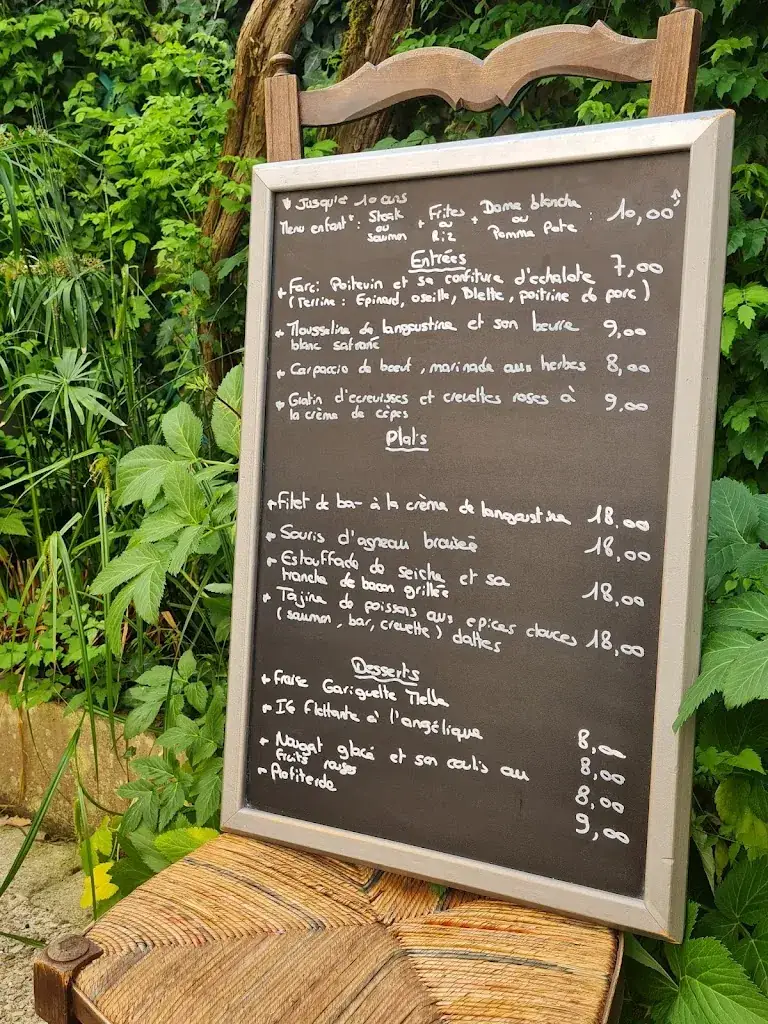 * Jusqu'à 10 ans
Menu enfant* : Steak ou saumon + Frites ou Riz + Dame blanche ou Pomme Pote : 10,00
Entrées
Farci Poitevin et sa confiture d'echalote 7,00
(Terrine : Epinard, oseille, Blette, poitrine de porc)
Mousseline de langoustine et son beurre 9,00
blanc safrané
Carpaccio de boeuf, marinade aux herbes 8,00
Gratin d'ecrevisses et crevettes roses à 9,00
la crème de cèpes
Plats
Filet de bar à la crème de langoustine 18,00
Souris d'agneau braisée 18,00
Estouffade de seiche et sa
tranche de bacon grillée 18,00
Tajine de poissons aux epices douces 18,00
(saumon, bar, crevette) dattes
Desserts
Fraise Gariguette Melba
Ile flottante à l'angélique 8,00
Nougat glacé et son coulis aux 8,00
fruits rouges 8,00
Profiterole 9,00